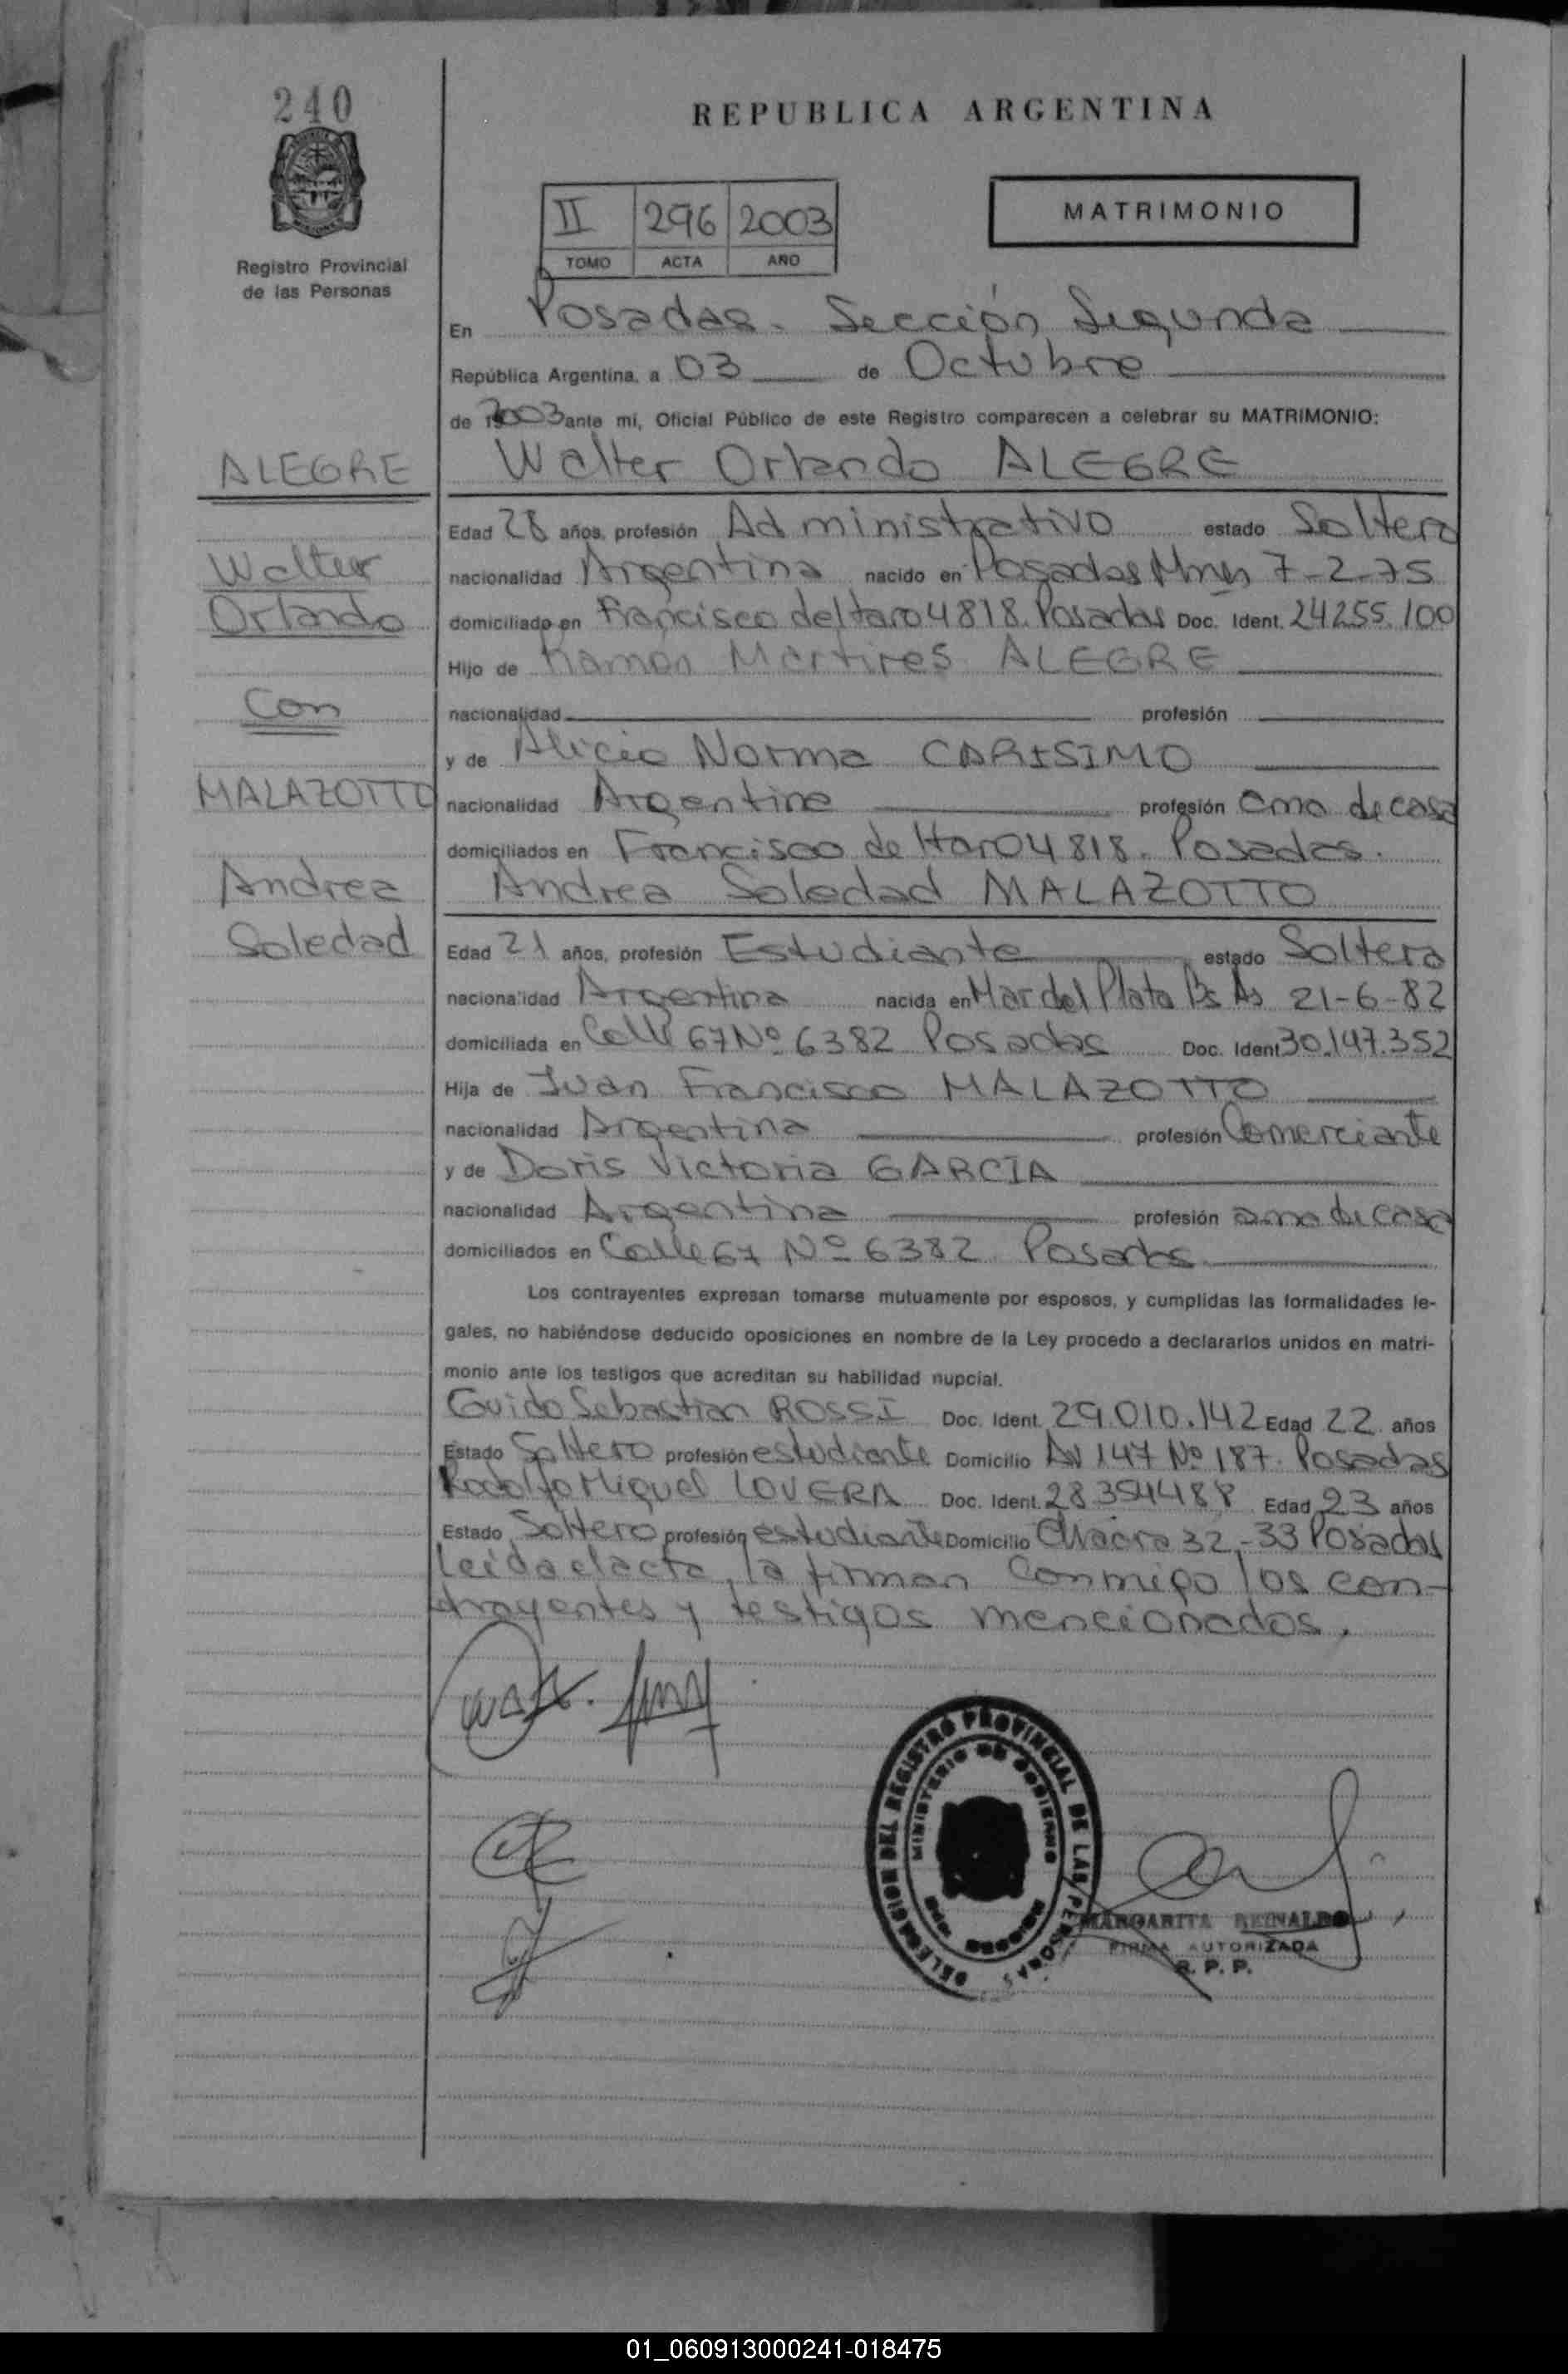 240
REPUBLICA ARGENTINA
II 296 2003
TOMO ACTA AÑO
MATRIMONIO
Registro Provincial
de las Personas
En Posadas. Sección Segunda
República Argentina, a 03 de Octubre
de 2003 ante mí, Oficial Público de este Registro comparecen a celebrar su MATRIMONIO:
ALEGRE
Walter Orlando ALEGRE
Edad 28 años, profesión Administrativo estado Soltero
Walter
nacionalidad Argentina nacido en Posadas Mnes 7-2-75
Orlando
domiciliado en Francisco de Haro 4818. Posadas Doc. Ident. 24255.100
Hijo de Ramon Martires ALEGRE
Con
nacionalidad profesión
y de Alicia Norma CARISIMO
MALAZOTTO
nacionalidad Argentina profesión ama de casa
domiciliados en Francisco de Haro 4818. Posadas.
Andrea
Andrea Soledad MALAZOTTO
Soledad
Edad 21 años, profesión Estudiante estado Soltera
nacionalidad Argentina nacida en Mar del Plata Bs As 21-6-82
domiciliada en Calle 67 Nº 6382 Posadas Doc. Ident 30.147.352
Hija de Juan Francisco MALAZOTTO
nacionalidad Argentina profesión Comerciante
y de Doris Victoria GARCIA
nacionalidad Argentina profesión ama de casa
domiciliados en Calle 67 Nº 6382 Posadas
Los contrayentes expresan tomarse mutuamente por esposos, y cumplidas las formalidades le-
gales, no habiéndose deducido oposiciones en nombre de la Ley procedo a declararlos unidos en matri-
monio ante los testigos que acreditan su habilidad nupcial.
Guido Sebastian ROSSI Doc. Ident. 29.010.142 Edad 22 años
Estado Soltero profesión estudiante Domicilio Av 147 Nº 187. Posadas
Rodolfo Miguel LOVERA Doc. Ident. 28354488 Edad 23 años
Estado Soltero profesión estudiante Domicilio Chacra 32-33 Posadas
Leida el acta, la firman conmigo los con-
trayentes y testigos mencionados.
DELEGACION DEL REGISTRO PROVINCIAL DE LAS PERSONAS
MINISTERIO DE GOBIERNO
MARGARITA REINALDO
FIRMA AUTORIZADA
R. P. P.
01_060913000241-018475